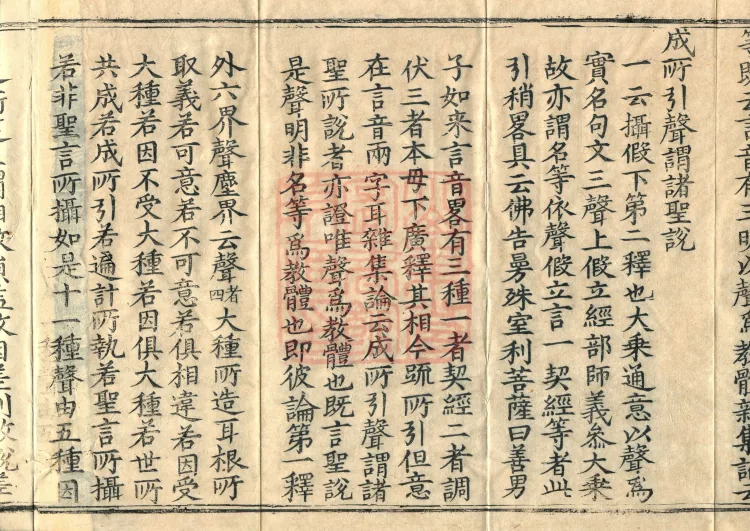 成所引聲謂諸聖說
一云攝假下第二釋也大乗通意以聲為
實名句文三聲上假立經部師義叅大乗
故亦謂名等依聲假立言一契經等者此
引稍畧具云佛告曼殊室利菩薩曰善男
子如来言音畧有三種一者契經二者調
伏三者本毋下廣釋其相今䟽所引但意
在言音兩字耳雜集論云成所引聲謂諸
聖所說者亦證唯聲爲教體也既言聖說
是聲明非名等爲教體也即彼論第一釋
外六界聲塵界云聲四者大種所造耳根所
取義若可意若不可意若俱相違若因受
大種若因不受大種若因俱大種若世所
共成若成所引若遍計所執若聖言所攝
若非聖言所攝如是十一種聲由五種因